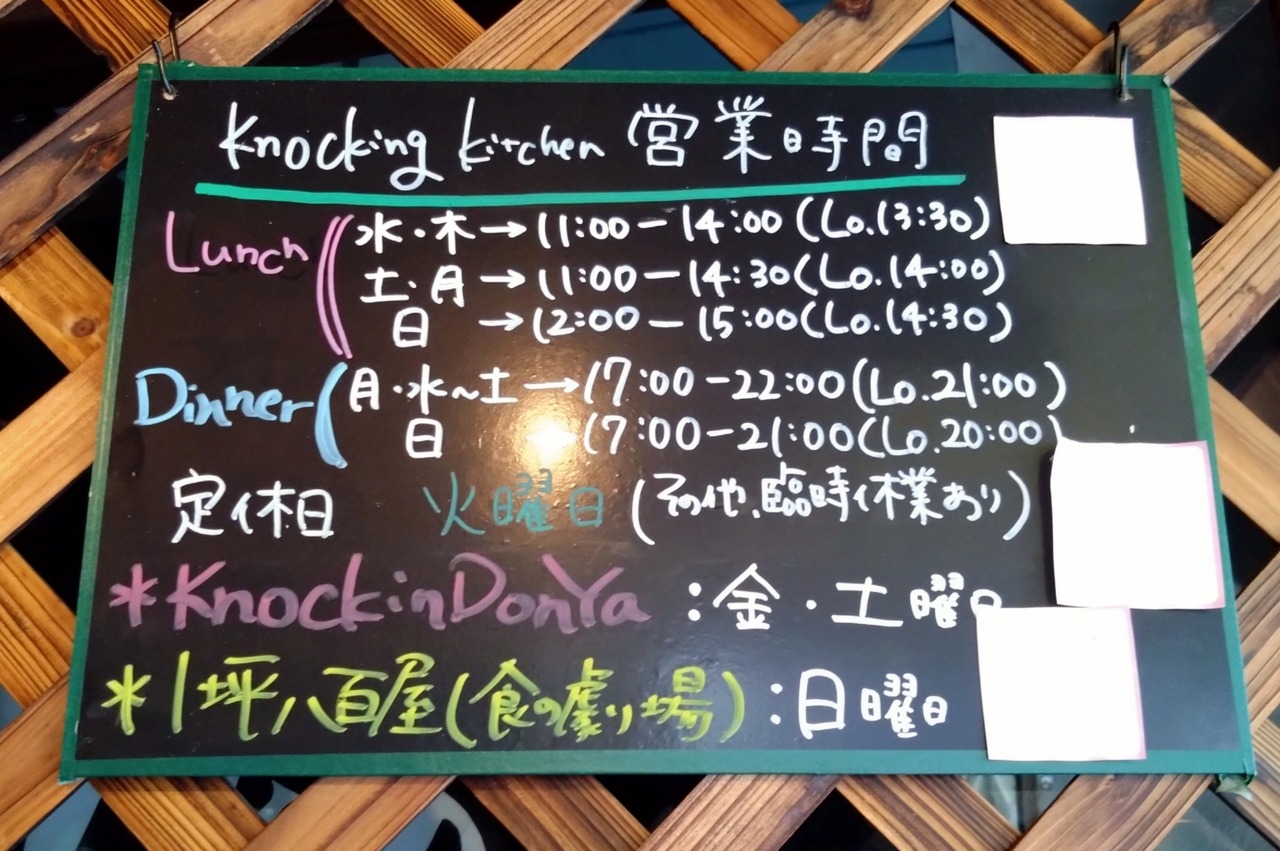 Knocking kitchen 営業時間
Lunch 水・木→11:00-14:00(Lo.13:30)
土・月→11:00-14:30(Lo.14:00)
日 →12:00-15:00(Lo.14:30)
Dinner 月・水~土→17:00-22:00(Lo.21:00)
日 →17:00-21:00(Lo.20:00)
定休日 火曜日(その他、臨時休業あり)
*KnockinDonYa:金・土曜日
*1坪八百屋(食の劇場):日曜日